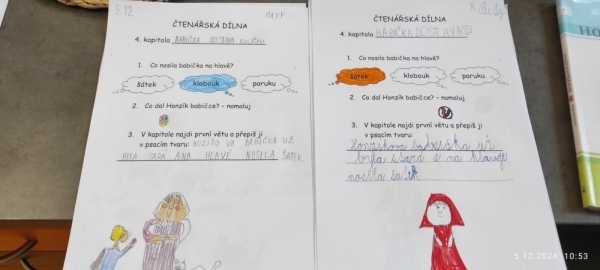 5.12.
MATY
ČTENÁŘSKÁ DÍLNA
4. kapitola BABIČKA DOSTANE
1. Co nosila babička na hlavě?
šátek klobouk paruku
2. Co dal Honzík babičce? - namaluj
3. V kapitole najdi první větu a přepiš ji
v psacím tvaru: BABIČKA UŽ
BILA ANA HLAVĚ NOSILA ŠATEK.
ČTENÁŘSKÁ DÍLNA
4. kapitola BABIČKA DOSTAVA
1. Co nosila babička na hlavě?
šátek klobouk paruku
2. Co dal Honzík babičce? - namaluj
3. V kapitole najdi první větu a přepiš ji
v psacím tvaru:
Honzíkova už
byla stará a na hlavě
nosila šátek
HO
5.12.2024 10:53